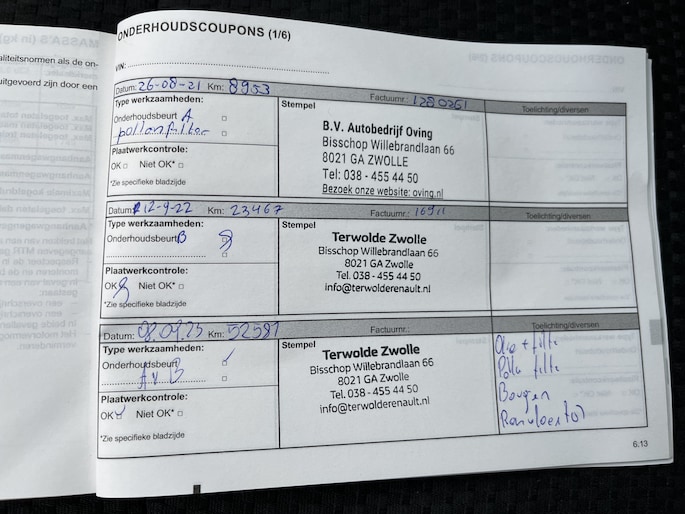 ONDERHOUDSCOUPONS (1/6)
aliteitsnormen als de on-
uitgevoerd zijn door een
VIN:
Datum: 26-08-21 Km: 8953 Factuurnr.: 1280261 Toelichting/diversen
Type werkzaamheden:
Onderhoudsbeurt A
pollenfilter
Plaatwerkcontrole:
OK Niet OK*
*Zie specifieke bladzijde
Stempel
B.V. Autobedrijf Oving
Bisschop Willebrandlaan 66
8021 GA ZWOLLE
Tel: 038 - 455 44 50
Bezoek onze website: oving.nl
Datum: 12-9-22 Km: 23467 Factuurnr.: Toelichting/diversen
Type werkzaamheden:
Onderhoudsbeurt B
Plaatwerkcontrole:
OK Niet OK*
*Zie specifieke bladzijde
Stempel
Terwolde Zwolle
Bisschop Willebrandlaan 66
8021 GA Zwolle
Tel. 038 - 455 44 50
info@terwolderenault.nl
Datum: 08.09.23 Km: 52581 Factuurnr.: Toelichting/diversen
Type werkzaamheden:
Onderhoudsbeurt
A B
Plaatwerkcontrole:
OK Niet OK*
*Zie specifieke bladzijde
Stempel
Terwolde Zwolle
Bisschop Willebrandlaan 66
8021 GA Zwolle
Tel. 038 - 455 44 50
info@terwolderenault.nl
Olie + filte
Polle filte
Bougen
6.13